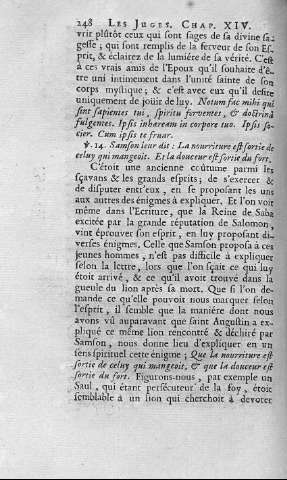 248 LES JUGES. CHAP. XIV.
vrir plûtôt ceux qui sont sages de sa divine sa-
gesse ; qui sont remplis de la ferveur de son Es-
prit, & éclairez de la lumiére de sa vérité. C'est
à ces vrais amis de l'Epoux qu'il souhaite d'ê-
tre uni intimement dans l'unité sainte de son
corps mystique ; & c'est avec eux qu'il desire
uniquement de joüir de luy. Notum fac mihi qui
sint sapientes tui, spiritu ferventes, & doctrinâ
fulgentes. Ipsis inhæream in corpore tuo. Ipsis so-
cier. Cum ipsis te fruar.
℣. 14. Samson leur dit : La nourriture est sortie de
celuy qui mangeoit. Et la douceur est sortie du fort.
C'étoit une ancienne coûtume parmi les
sçavans & les grands esprits ; de s'exercer &
de disputer entr'eux, en se proposant les uns
aux autres des énigmes à expliquer. Et l'on voit
même dans l'Ecriture, que la Reine de Saba
excitée par la grande réputation de Salomon,
vint éprouver son esprit, en luy proposant di-
verses énigmes. Celle que Samson proposa à ces
jeunes hommes, n'est pas difficile à expliquer
selon la lettre, lors que l'on sçait ce qui luy
étoit arrivé, & ce qu'il avoit trouvé dans la
gueule du lion après sa mort. Que si l'on de-
mande ce qu'elle pouvoit nous marquer selon
l'esprit, il semble que la maniére dont nous
avons vû auparavant que saint Augustin a ex-
pliqué ce même lion rencontré & déchiré par
Samson, nous donne lieu d'expliquer en un
sens spirituel cette énigme ; Que la nourriture est
sortie de celuy qui mangeoit, & que la douceur est
sortie du fort. Figurons-nous, par exemple un
Saul, qui étant persécuteur de la foy, étoit
semblable à un lion qui cherchoit à devorer